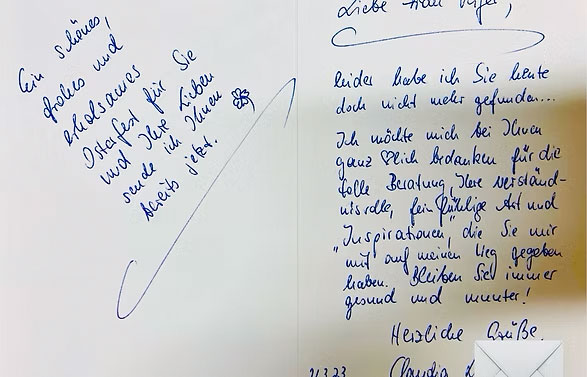 Ein schönes,
frohes und
erholsames
Osterfest für Sie
und Ihre Lieben
sende ich Ihnen
bereits jetzt.
Liebe Frau
leider habe ich Sie heute
doch nicht mehr gefunden...
Ich möchte mich bei Ihnen
ganz ♡lich bedanken für die
tolle Beratung, Ihre verständ-
nisvolle, feinfühlige Art und
"Inspirationen", die Sie mir
"mit auf meinen Weg gegeben
haben. Bleiben Sie immer
gesund und munter!
Herzliche Grüße,
Claudia